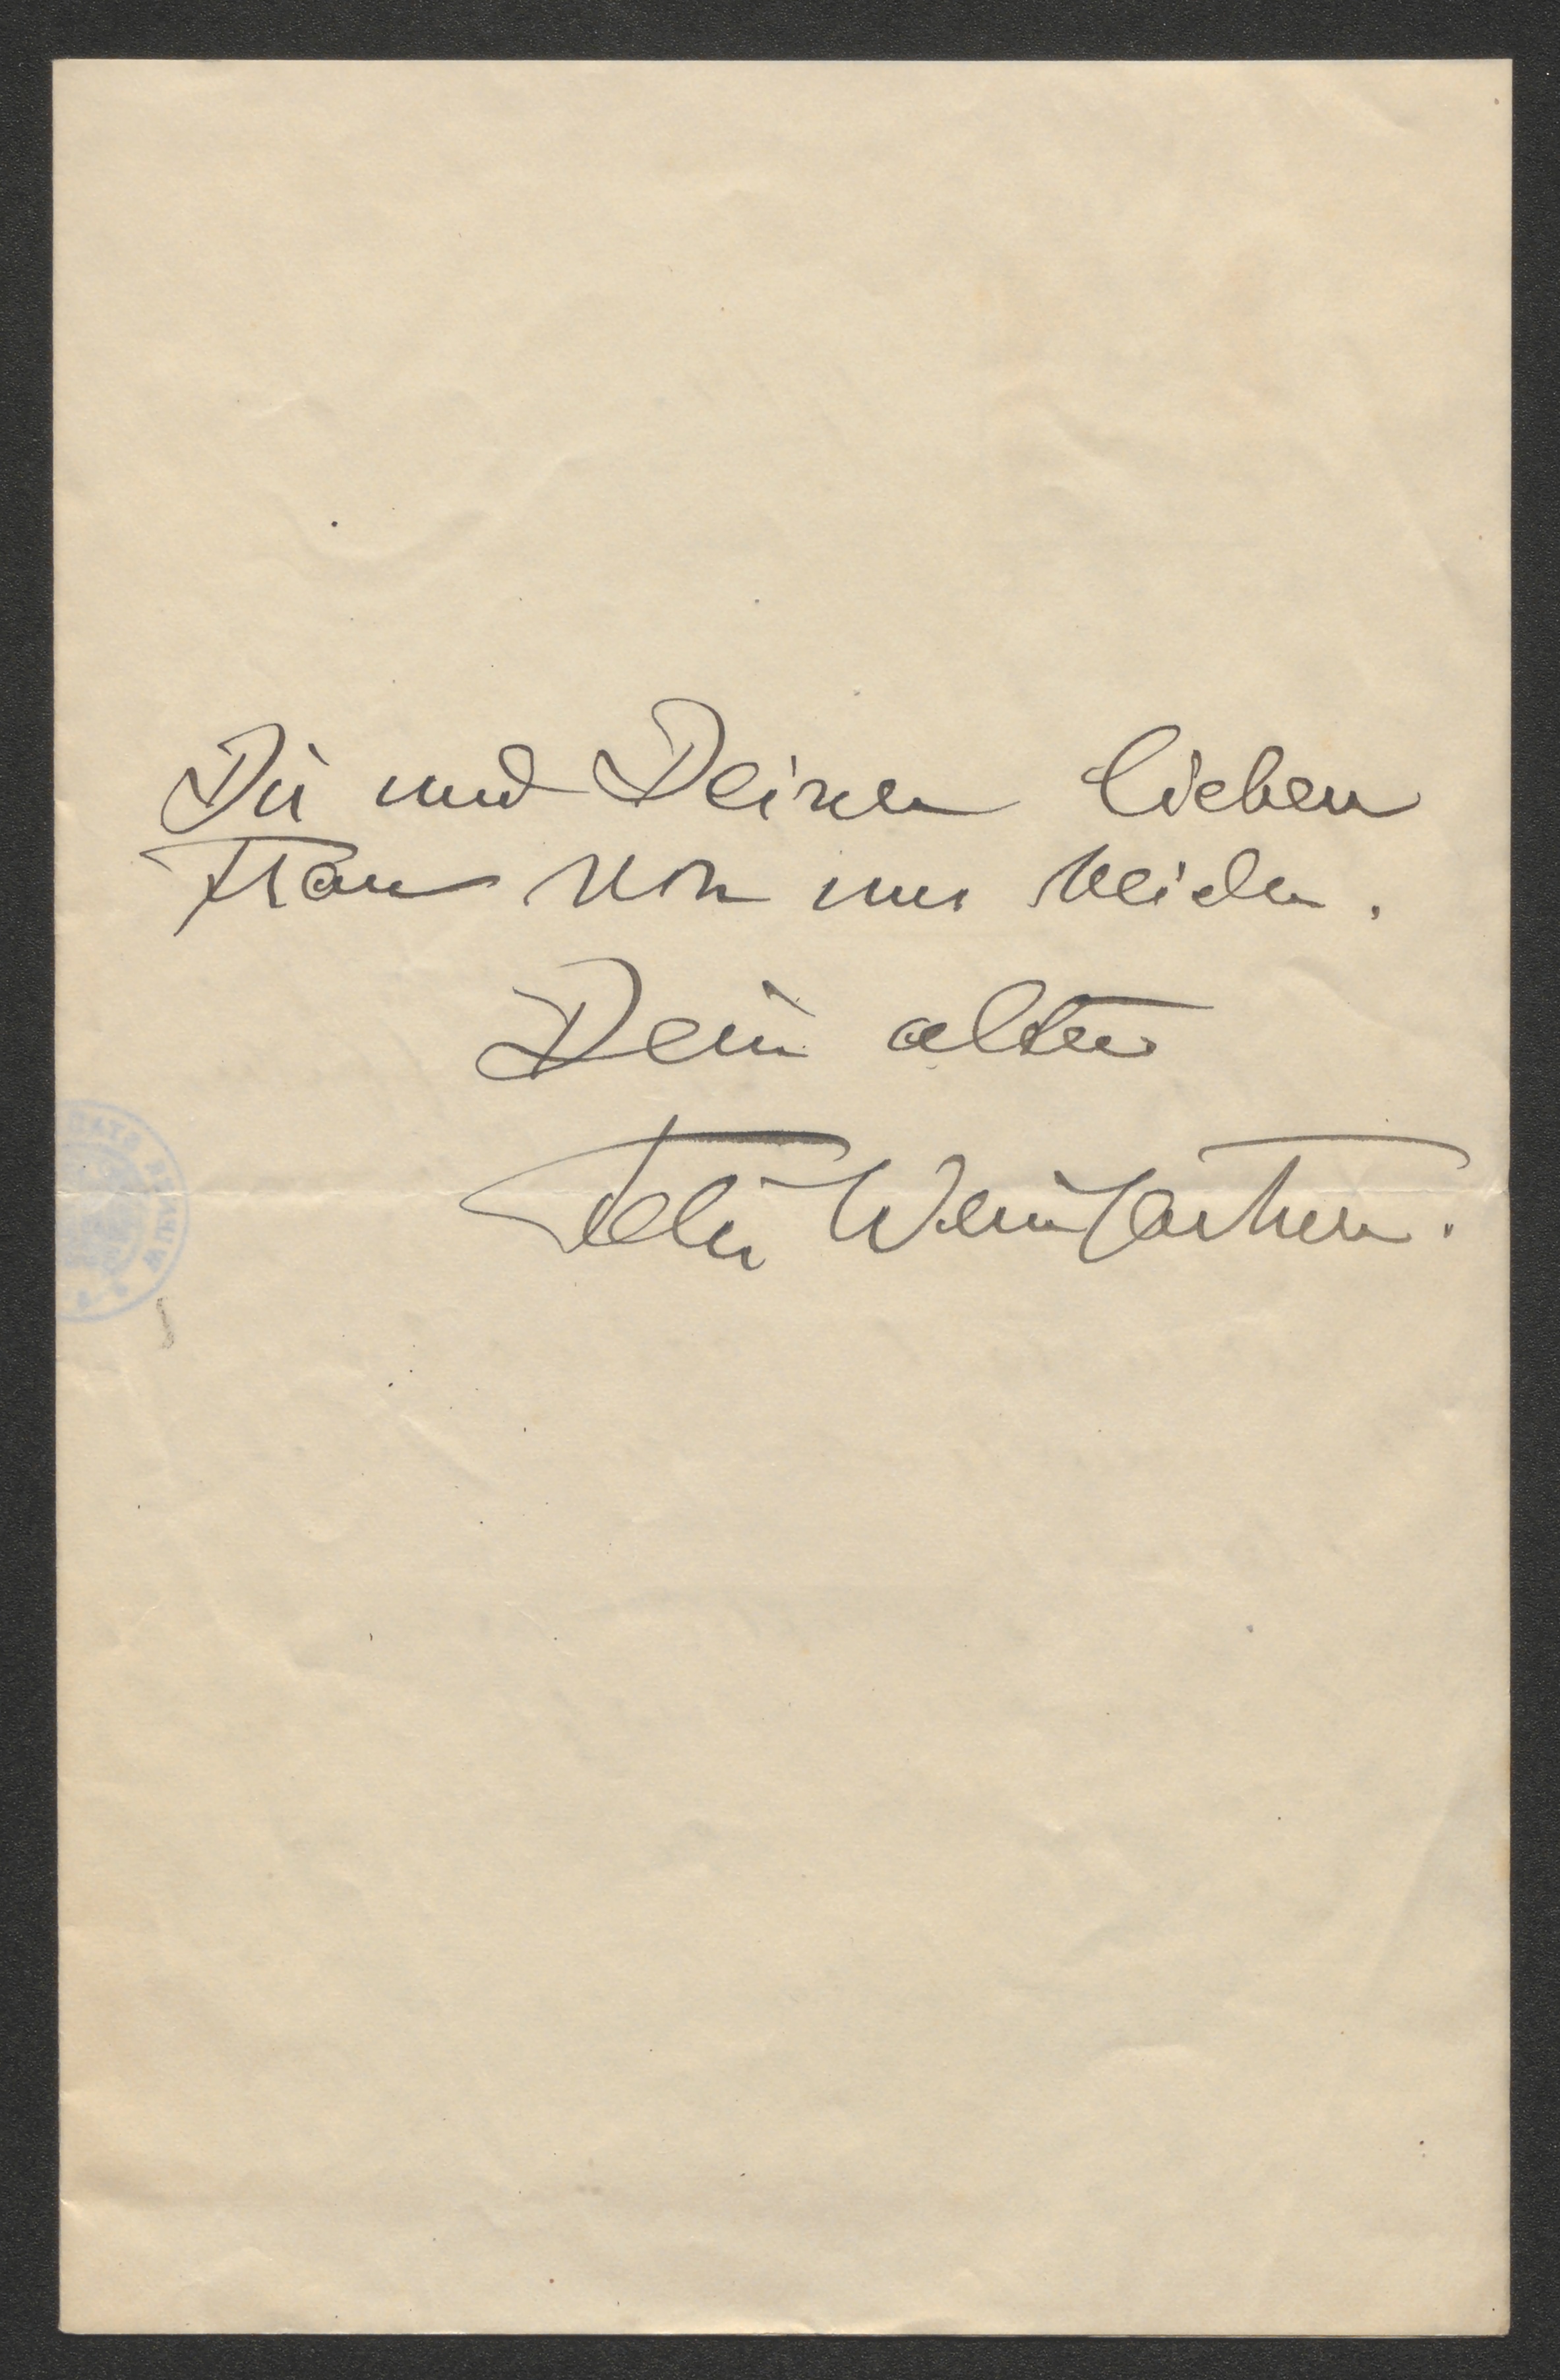 Dir und Deiner lieben
Frau von uns beiden.
Dein alter
Felix Weingartner.